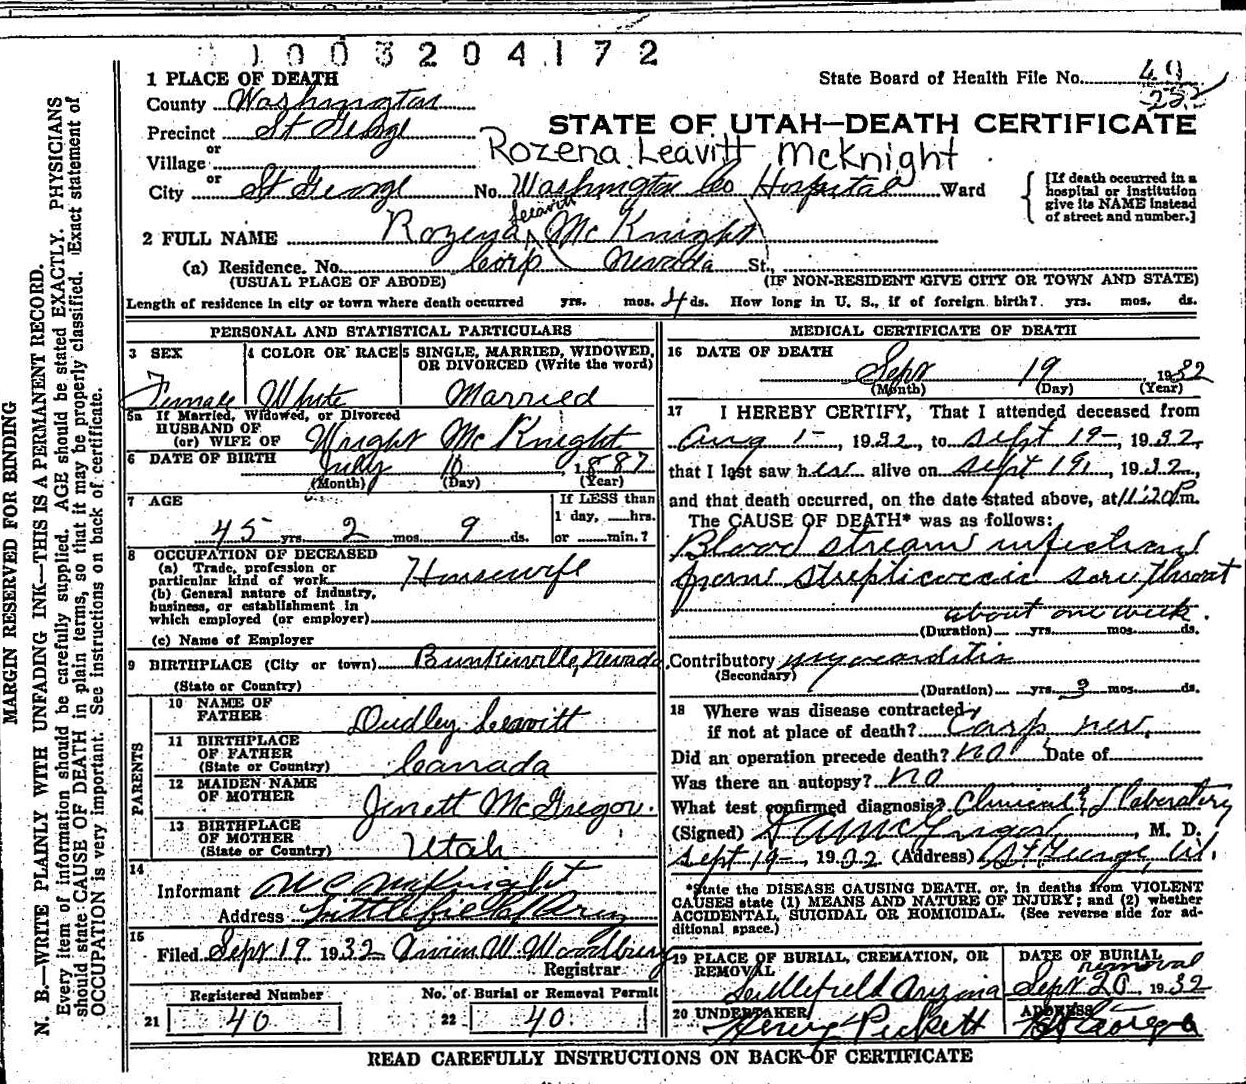 1003204172
1 PLACE OF DEATH
State Board of Health File No. 49
County Washington
232
Precinct St George
STATE OF UTAH—DEATH CERTIFICATE
or
Village
Rozena Leavitt McKnight
City or St George No. Washington Co Hospital Ward
[If death occurred in a hospital or institution give its NAME instead of street and number.]
Leavitt
2 FULL NAME Rozena ^ Mc Knight
(a) Residence. No. Nevada St.
(USUAL PLACE OF ABODE) (IF NON-RESIDENT GIVE CITY OR TOWN AND STATE)
Length of residence in city or town where death occurred yrs. mos. 4 ds. How long in U. S., if of foreign birth? yrs. mos. ds.
PERSONAL AND STATISTICAL PARTICULARS
3 SEX 4 COLOR OR RACE 5 SINGLE, MARRIED, WIDOWED,
OR DIVORCED (Write the word)
Female White Married
5a If Married, Widowed, or Divorced
HUSBAND OF
(or) WIFE OF Wright Mc Knight
6 DATE OF BIRTH July 10 1887
(Month) (Day) (Year)
7 AGE If LESS than
1 day, hrs.
45 yrs. 2 mos. 9 ds. or min.?
8 OCCUPATION OF DECEASED
(a) Trade, profession or
particular kind of work Housewife
(b) General nature of industry,
business, or establishment in
which employed (or employer)
(c) Name of Employer
9 BIRTHPLACE (City or town) Bunkerville, Nevada
(State or Country)
PARENTS
10 NAME OF
FATHER Dudley Leavitt
11 BIRTHPLACE
OF FATHER
(State or Country) Canada
12 MAIDEN NAME
OF MOTHER Jenett McGregor.
13 BIRTHPLACE
OF MOTHER
(State or Country) Utah
14
Informant McKnight
Address Littlefield, Ariz
15
Filed Sept 19 1932 M. Woodbury
Registrar
Registered Number No. of Burial or Removal Permit
21 40 22 40
MEDICAL CERTIFICATE OF DEATH
16 DATE OF DEATH
Sept 19 1932
(Month) (Day) (Year)
17 I HEREBY CERTIFY, That I attended deceased from
Aug 1-, 1932, to Sept 19-, 1932,
that I last saw her alive on Sept 19, 1932,
and that death occurred, on the date stated above, at 11:20 P.m.
The CAUSE OF DEATH* was as follows:
Blood stream infection
from strepticoccic sore throat
about one week.
(Duration) yrs. mos. ds.
Contributory myocarditis
(Secondary)
(Duration) yrs. 3 mos. ds.
18 Where was disease contracted
if not at place of death? Carp Nev.
Did an operation precede death? no Date of
Was there an autopsy? no
What test confirmed diagnosis? Clinical & laboratory
(Signed) McGregor, M. D.
Sept 19-, 1932 (Address) St. George, Ut.
*State the DISEASE CAUSING DEATH, or, in deaths from VIOLENT
CAUSES state (1) MEANS AND NATURE OF INJURY; and (2) whether
ACCIDENTAL, SUICIDAL OR HOMICIDAL. (See reverse side for ad-
ditional space.)
19 PLACE OF BURIAL, CREMATION, OR REMOVAL
Littlefield Arizona
DATE OF BURIAL
removal
Sept 20 1932
20 UNDERTAKER ADDRESS
Henry Pickett St George
READ CAREFULLY INSTRUCTIONS ON BACK OF CERTIFICATE
MARGIN RESERVED FOR BINDING
N. B.—WRITE PLAINLY WITH UNFADING INK—THIS IS A PERMANENT RECORD.
Every item of information should be carefully supplied. AGE should be stated EXACTLY. PHYSICIANS
should state CAUSE OF DEATH in plain terms, so that it may be properly classified. Exact statement of
OCCUPATION is very important. See instructions on back of certificate.